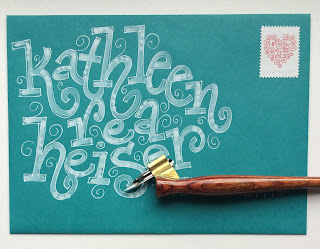 kathleen
rear
heiser